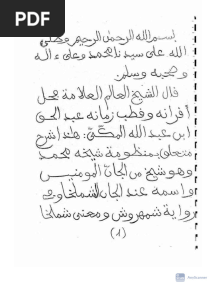 PDF
بسم الله الرحمن الرحيم وصلى
الله على سيدنا محمد وعلى ءاله
وصحبه وسلم
قال الشيخ العالم العلامة محل
أقرانه وقطب زمانه عبد الحق
ابن عبد الله المكي: هذا شرح
متعلق بمنظومة شيخه محمد
وهو شيخ من الجان المومنيس
واسمه عند الجان الشملخاوي
رواية شمهروش ومعنى شملخا
(١)